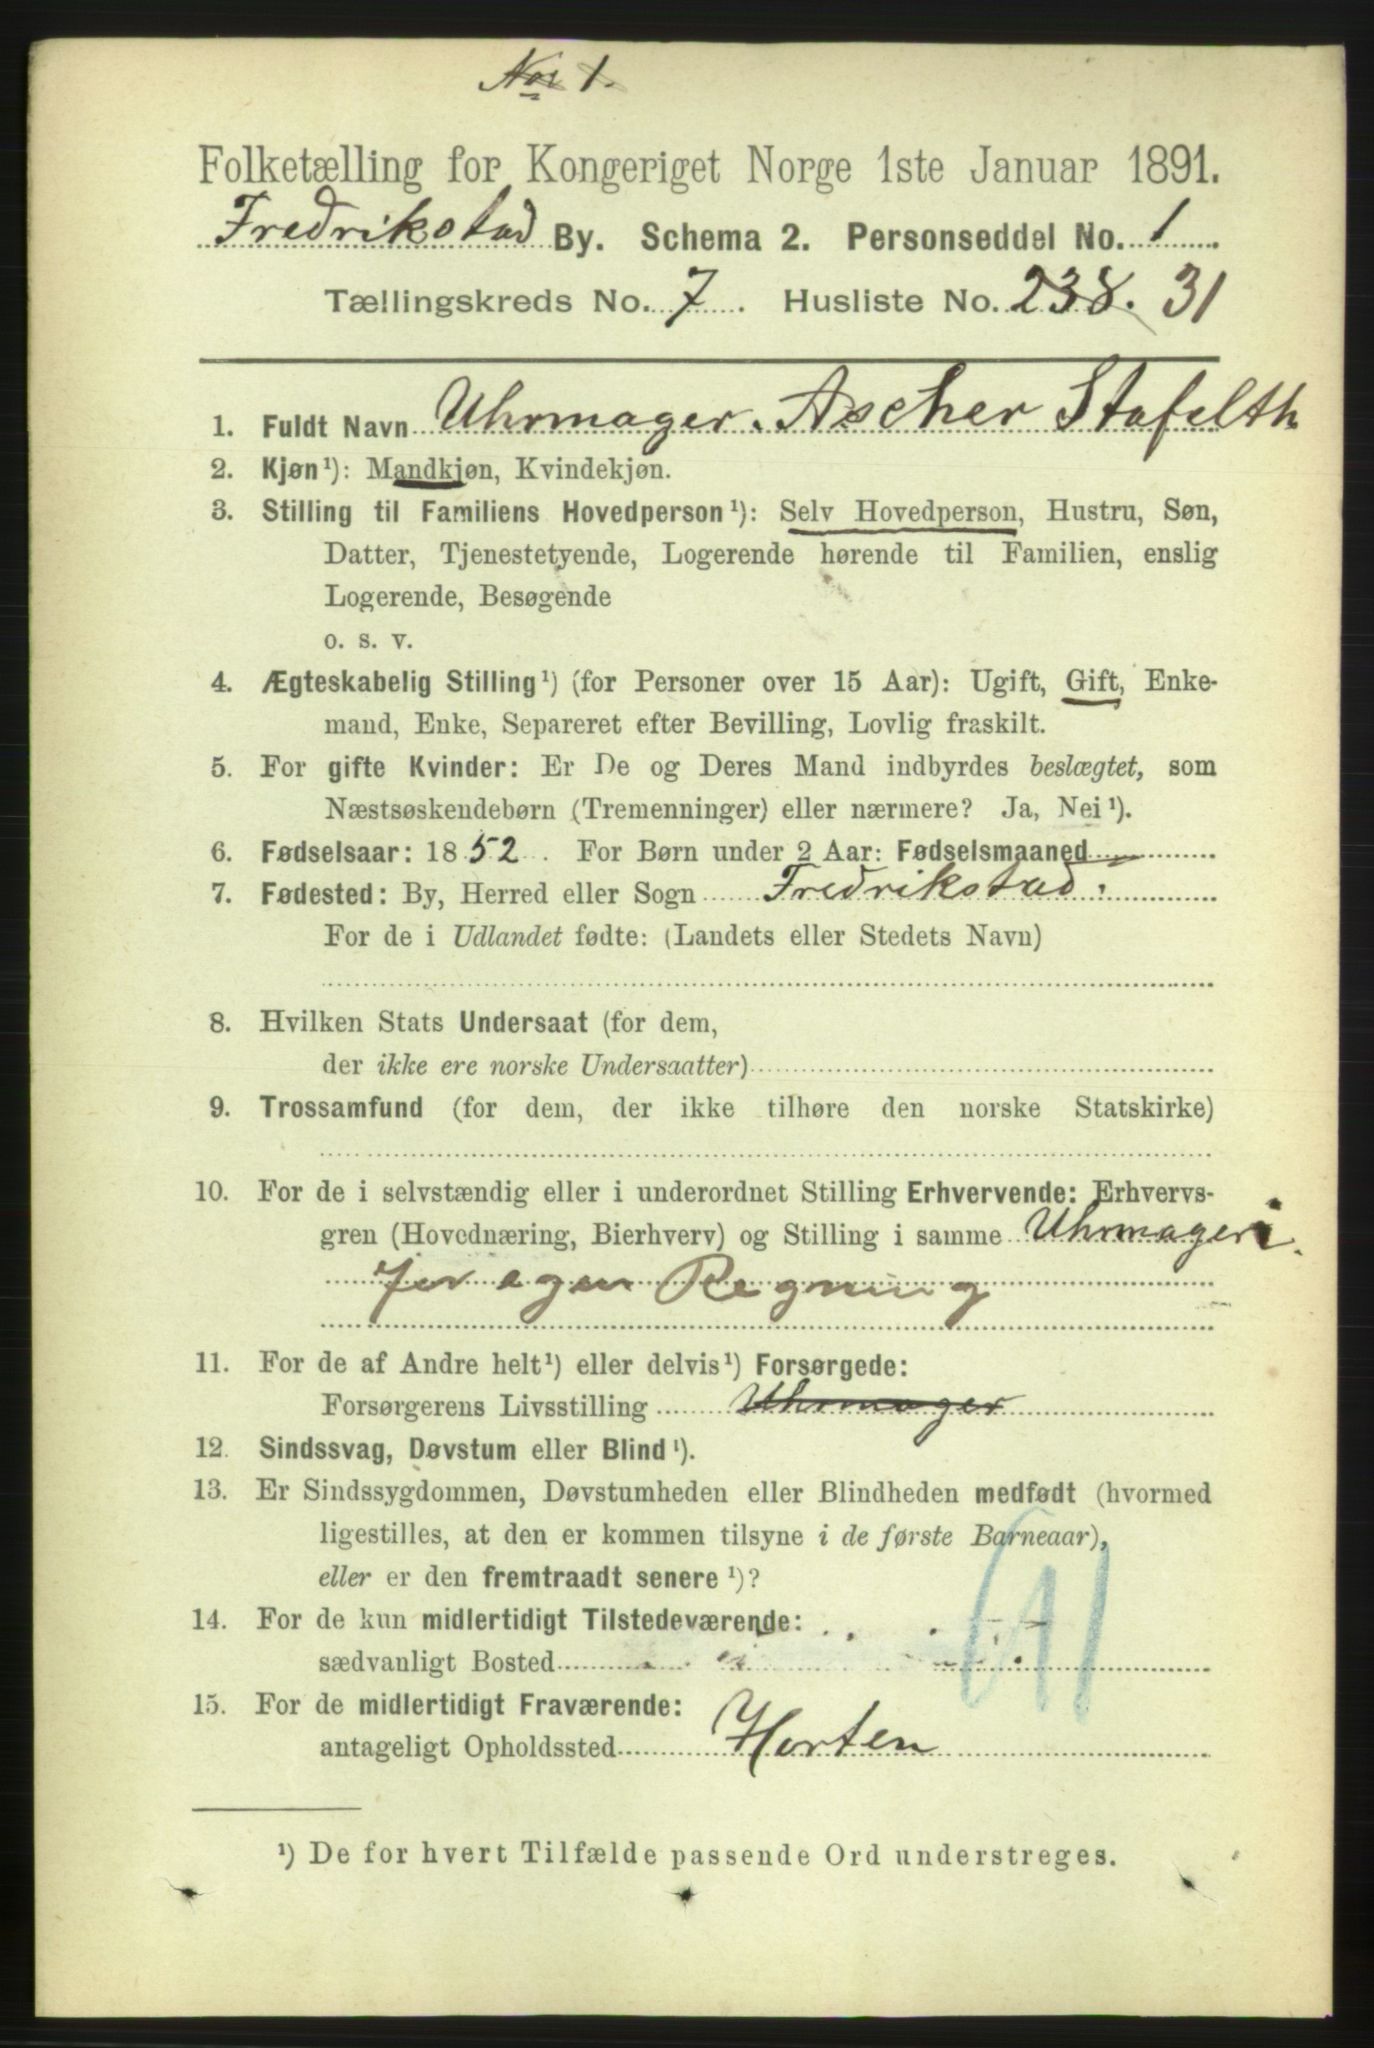 No 1.
Folketælling for Kongeriget Norge 1ste Januar 1891.
Fredrikstad By. Schema 2. Personseddel No. 1
Tællingskreds No. 7. Husliste No. 238. 31
1. Fuldt Navn Uhrmager. Ascher Stafelth
2. Kjøn¹): Mandkjøn, Kvindekjøn.
3. Stilling til Familiens Hovedperson¹): Selv Hovedperson, Hustru, Søn,
Datter, Tjenestetyende, Logerende hørende til Familien, enslig
Logerende, Besøgende
o. s. v.
4. Ægteskabelig Stilling¹) (for Personer over 15 Aar): Ugift, Gift, Enke-
mand, Enke, Separeret efter Bevilling, Lovlig fraskilt.
5. For gifte Kvinder: Er De og Deres Mand indbyrdes beslægtet, som
Næstsøskendebørn (Tremenninger) eller nærmere? Ja, Nei¹).
6. Fødselsaar: 1852. For Børn under 2 Aar: Fødselsmaaned
7. Fødested: By, Herred eller Sogn Fredrikstad.
For de i Udlandet fødte: (Landets eller Stedets Navn)
8. Hvilken Stats Undersaat (for dem,
der ikke ere norske Undersaatter)
9. Trossamfund (for dem, der ikke tilhøre den norske Statskirke)
10. For de i selvstændig eller i underordnet Stilling Erhvervende: Erhvervs-
gren (Hovednæring, Bierhverv) og Stilling i samme Uhrmageri.
for egen Regning
11. For de af Andre helt¹) eller delvis¹) Forsørgede:
Forsørgerens Livsstilling Uhrmager
12. Sindssvag, Døvstum eller Blind¹).
13. Er Sindssygdommen, Døvstumheden eller Blindheden medfødt (hvormed
ligestilles, at den er kommen tilsyne i de første Barneaar),
eller er den fremtraadt senere¹)?
14. For de kun midlertidigt Tilstedeværende:
sædvanligt Bosted
15. For de midlertidigt Fraværende:
antageligt Opholdssted Horten
¹) De for hvert Tilfælde passende Ord understreges.